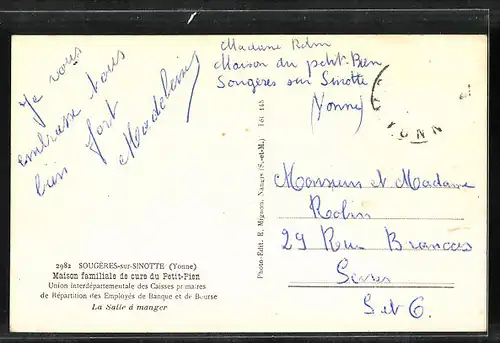 Je vous
embrasse tous
bien fort
Madeleine
Madame Robin
Maison du petit-Bien
Sougères sur Sinotte
(Yonne)
YONN
Monsieur et Madame
Robin
29 Rue Brancas
Sevres
S et O.
Photo-Edit. E. Mignon, Nangis (S.-et-M.) Tél. 145
2982 SOUGÈRES-sur-SINOTTE (Yonne)
Maison familiale de cure du Petit-Pien
Union interdépartementale des Caisses primaires
de Répartition des Employés de Banque et de Bourse
La Salle à manger